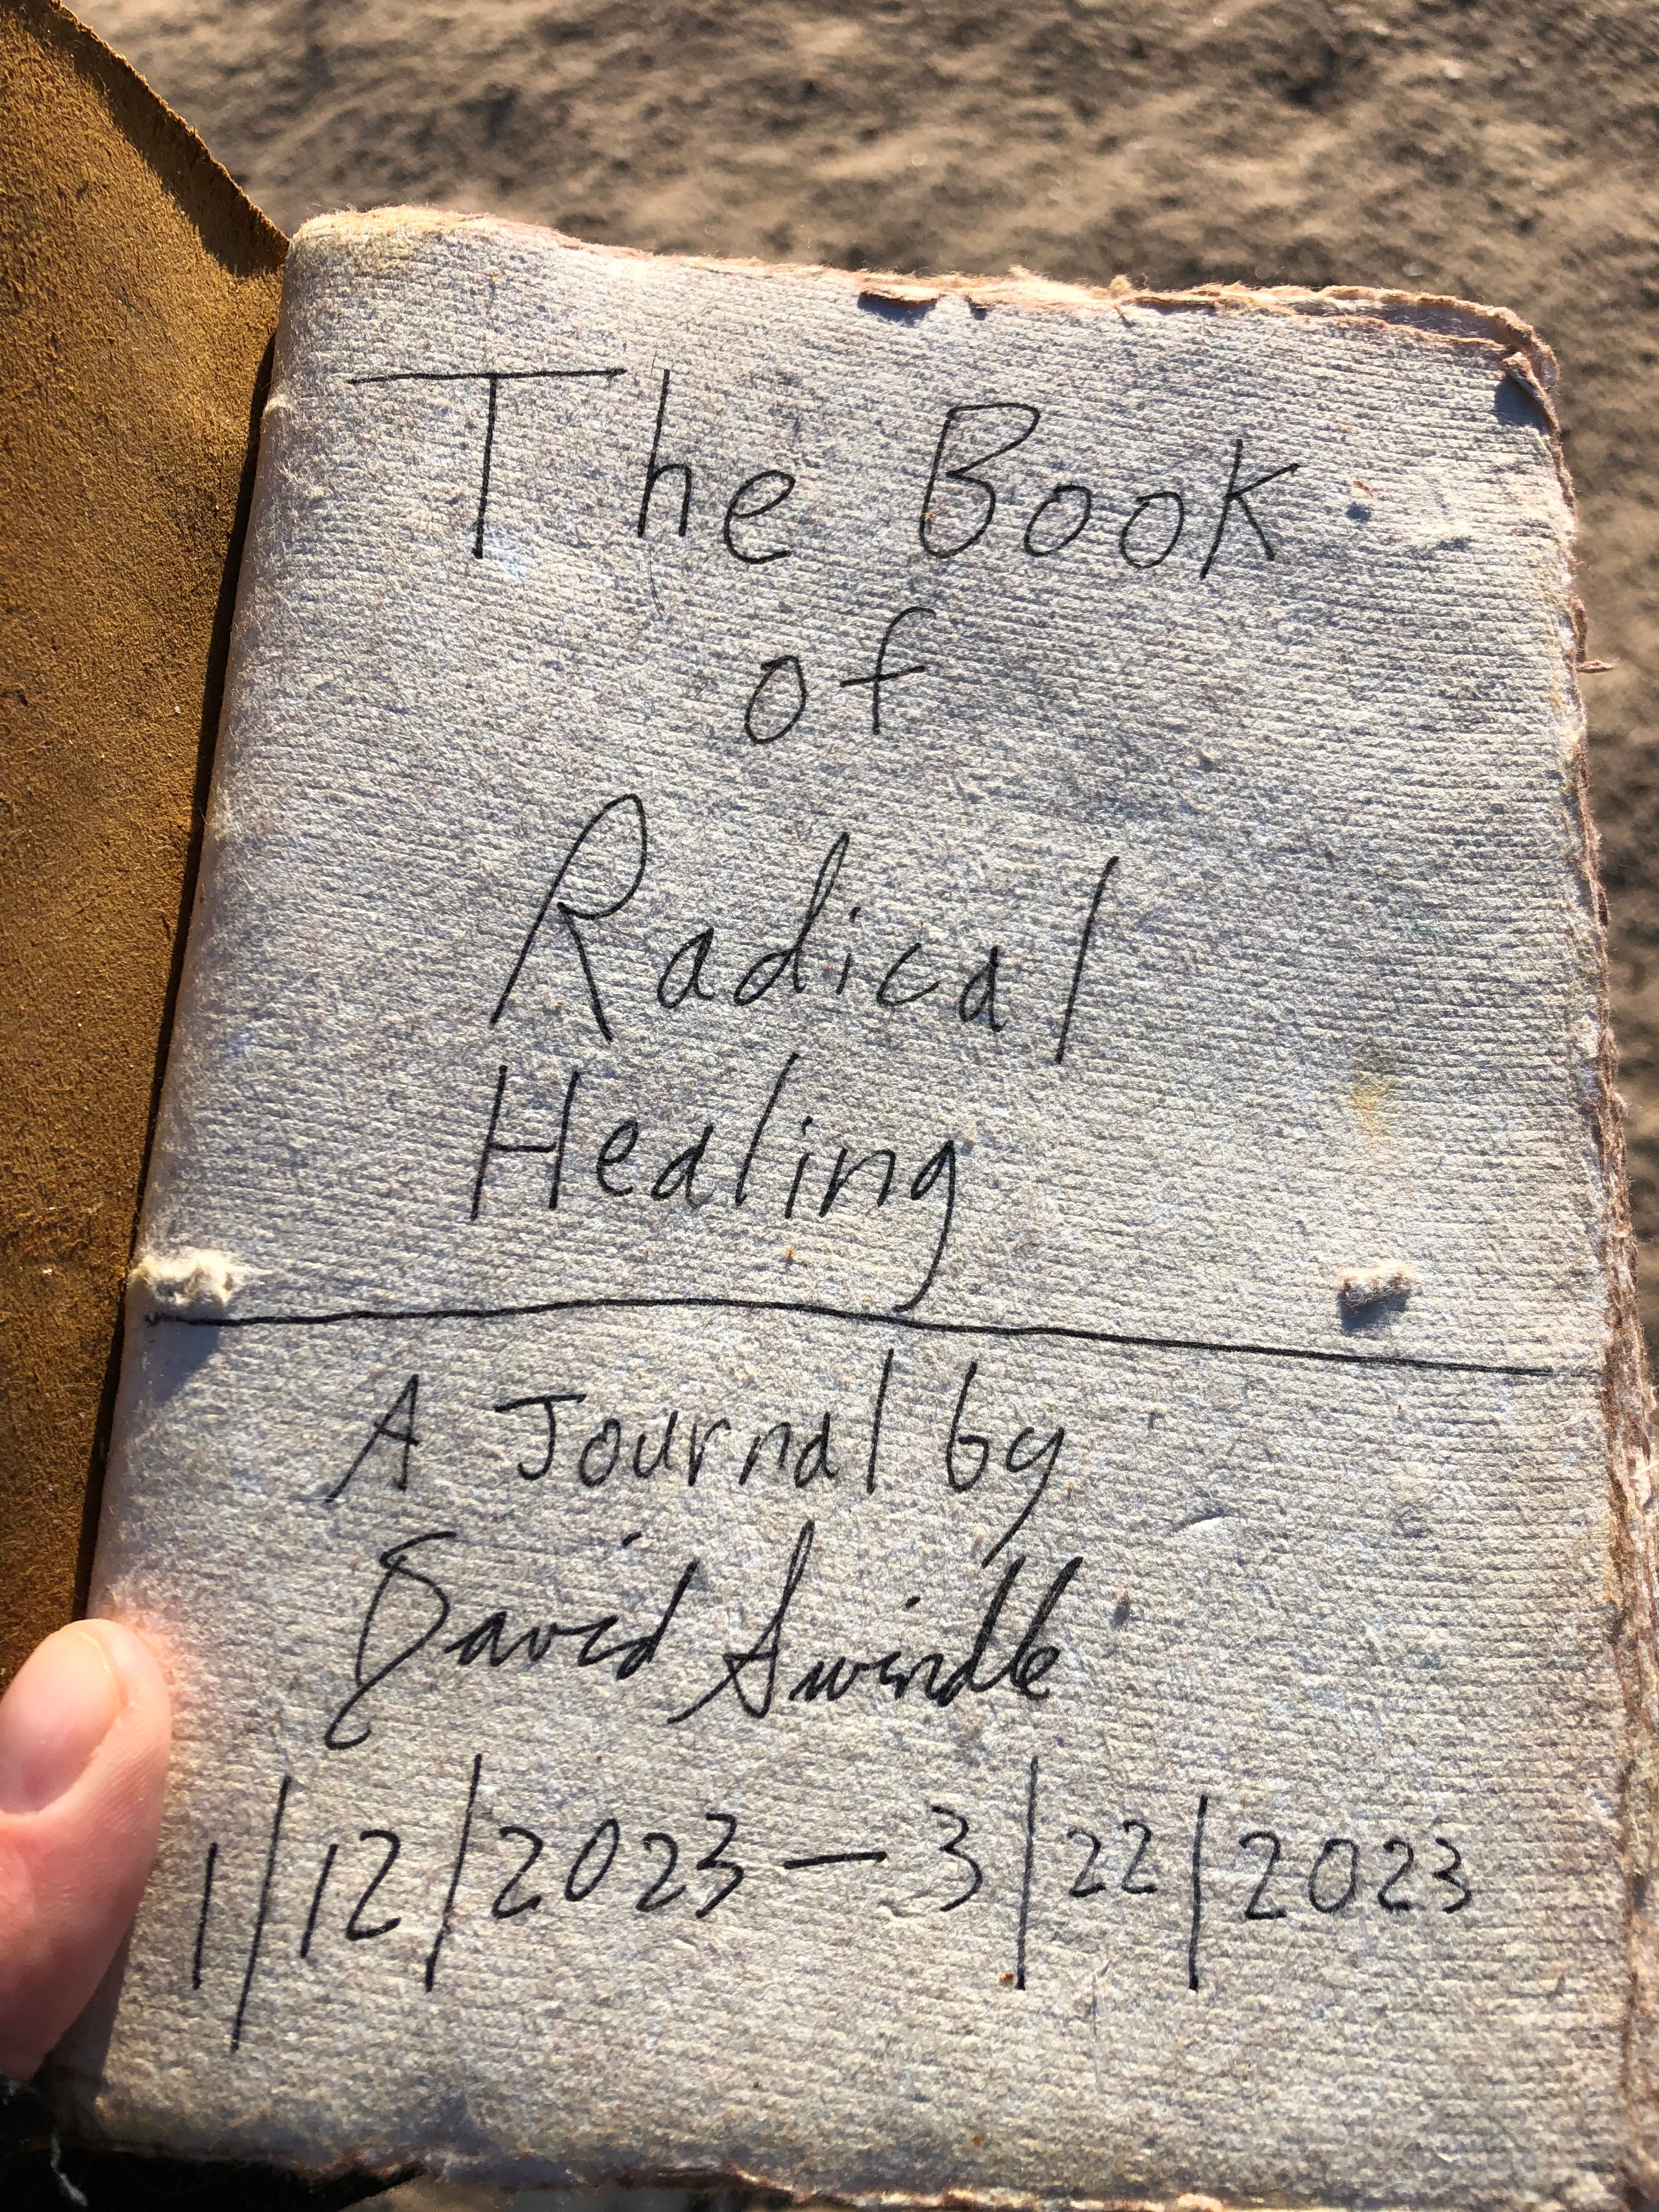 The Book
of
Radical
Healing
A Journal by
David Swindle
1/12/2023 — 3/22/2023